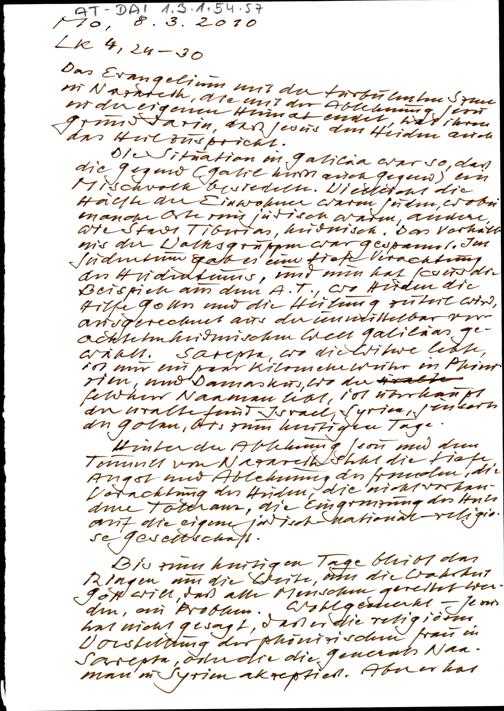 AT-DAI 1.3.1.54.57
Mo, 8.3.2010
Lk 4,24-30
Das Evangelium mit der turbulenten Szene
in Nazareth, die mit der Ablehnung Jesu
in der eigenen Heimat endet, hat ihren
Grund darin, daß Jesus den Heiden auch
das Heil zuspricht.
Die Situation in Galiläa war so, daß
die Gegend (Galil heißt auch Gegend) ein
Mischvolk besiedelte. Vielleicht die
Hälfte der Einwohner waren Juden, wobei
manche Orte rein jüdisch waren, andere,
wie Stadt Tiberias, heidnisch. Das Verhält-
nis der Volksgruppen war gespannt. Im
Judentum gab es eine tiefe Verachtung
des Heidentums, und nun hat Jesus die
Beispiele aus dem A.T., wo Heiden die
Hilfe Gottes und die Heilung zuteil wird,
ausgerechnet aus der unmittelbar ver-
achteten heidnischen Welt Galiläas ge-
wählt. Sarepta, wo die Witwe lebte,
ist nur ein paar Kilometer weiter in Phöni-
zien, und Damaskus, wo der
Feldherr Naaman lebt, ist überhaupt
der uralte Feind Israels, Syrien, jenseits
des Golan, bis zum heutigen Tage.
Hinter der Ablehnung Jesu und dem
Tumult von Nazareth steht die tiefe
Angst und Ablehnung des Fremden, die
Verachtung der Heiden, die nicht vorhan-
dene Toleranz, die Eingrenzung des Heils
auf die eigene jüdisch-national-religiö-
se Gesellschaft.
Bis zum heutigen Tage bleibt das
Ringen um die Weite, um die Wahrheit
Gott will, daß alle Menschen gerettet wer-
den, ein Problem. Wohlgemerkt - Jesus
hat nicht gesagt, daß er die religiösen
Vorstellung der phönizischen Frau in
Sarepta, oder die des Generals Naa-
man in Syrien akzeptiert. Aber er hat